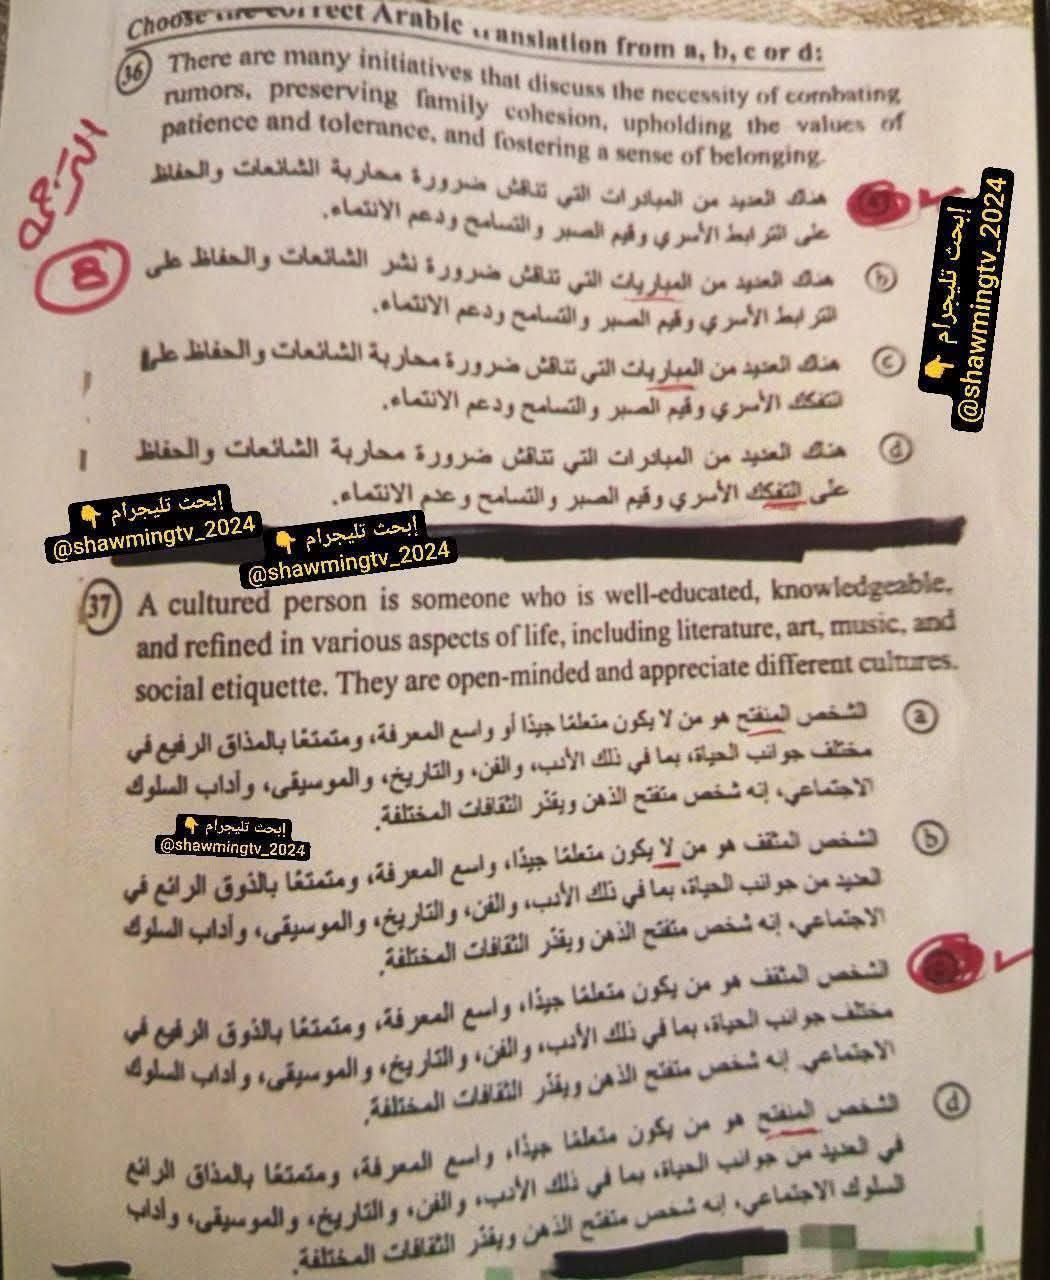 Choose the correct Arabic translation from a, b, c or d:
36 There are many initiatives that discuss the necessity of combating
rumors, preserving family cohesion, upholding the values of
patience and tolerance, and fostering a sense of belonging.
هناك العديد من المبادرات التي تناقش ضرورة محاربة الشائعات والحفاظ
على الترابط الأسري وقيم الصبر والتسامح ودعم الانتماء.
b هناك العديد من المباريات التي تناقش ضرورة نشر الشائعات والحفاظ على
الترابط الأسري وقيم الصبر والتسامح ودعم الانتماء.
c هناك العديد من المباريات التي تناقش ضرورة محاربة الشائعات والحفاظ على
التفكك الأسري وقيم الصبر والتسامح ودعم الانتماء.
d هناك العديد من المبادرات التي تناقش ضرورة محاربة الشائعات والحفاظ
على التفكك الأسري وقيم الصبر والتسامح وعدم الانتماء.
الترجمة
8
إبحث تليجرام
@shawmingtv_2024
إبحث تليجرام
@shawmingtv_2024
إبحث تليجرام
@shawmingtv_2024
37 A cultured person is someone who is well-educated, knowledgeable,
and refined in various aspects of life, including literature, art, music, and
social etiquette. They are open-minded and appreciate different cultures.
a الشخص المنفتح هو من لا يكون متعلمًا جيدًا أو واسع المعرفة، ومتمتعًا بالمذاق الرفيع في
مختلف جوانب الحياة، بما في ذلك الأدب، والفن، والتاريخ، والموسيقى، وأداب السلوك
الاجتماعي، إنه شخص متفتح الذهن ويقدّر الثقافات المختلفة.
إبحث تليجرام
@shawmingtv_2024
b الشخص المثقف هو من لا يكون متعلمًا جيدًا، واسع المعرفة، ومتمتعًا بالذوق الرائع في
العديد من جوانب الحياة، بما في ذلك الأدب، والفن، والتاريخ، والموسيقى، وأداب السلوك
الاجتماعي، إنه شخص متفتح الذهن ويقدّر الثقافات المختلفة.
الشخص المثقف هو من يكون متعلمًا جيدًا، واسع المعرفة، ومتمتعًا بالذوق الرفيع في
مختلف جوانب الحياة، بما في ذلك الأدب، والفن، والتاريخ، والموسيقى، وأداب السلوك
الاجتماعي. إنه شخص متفتح الذهن ويقدّر الثقافات المختلفة.
d الشخص المنفتح هو من يكون متعلمًا جيدًا، واسع المعرفة، ومتمتعًا بالمذاق الرائع
في العديد من جوانب الحياة، بما في ذلك الأدب، والفن، والتاريخ، والموسيقى، وأداب
السلوك الاجتماعي، إنه شخص متفتح الذهن ويقدّر الثقافات المختلفة.